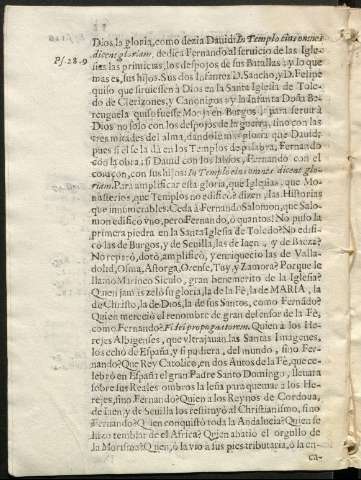 Dios la gloria, como dezia Dauid: In Templo eius omnes
dicent gloriam, dedica Fernando al seruicio de las Igle-
Ps. 28. 9
sias las primicias, los despojos de sus Batallas; y lo que
mas es, sus hijos. Sus dos Infantes D. Sancho, y D. Felipe
quiso que siruiessen à Dios en la Santa Iglesia de Tole-
do de Clerizones, y Canonigos: y la Infanta Doña Be-
renguela quiso fuesse Monja en Burgos: para seruir à
Dios no solo con los despojos de la guerra, sino con las
tres mitades del alma, dandole mas gloria que Dauid;
pues si el se la dà en los Templos de palabra, Fernando
con la obra; si Dauid con los labios, Fernando con el
coraçon, con sus hijos: In Templo eius omnes dicent glo-
riam. Para amplificar esta gloria, què Iglesias, que Mo-
nasterios, que Templos no edificò? dizen las Historias
que innumerables. Ceda à Fernando Salomon, que Salo-
mon edificò vno, pero Fernando, ò quantos! No puso la
primera piedra en la Santa Iglesia de Toledo? No edifi-
cò las de Burgos, y de Seuilla, las de Iaen, y de Baeza?
No reparò, dotò, amplificò, y enriquecio las de Valla-
dolid, Osma, Astorga, Orense, Tuy, y Zamora? Porque le
llamo Marineo Siculo, gran benemerito de la Iglesia?
Quien jamàs zelò su gloria, la de la Fè, la de MARIA, la
de Christo, la de Dios, la de sus Santos, como Fernãdo?
Quien mereciò el renombre de gran defensor de la Fè,
como Fernando? Fidei propugnatorem. Quien à los He-
rejes Albigenses, que vltrajauan las Santas Imagenes,
los echò de España, y si pudiera, del mundo, sino Fer-
nando? Que Rey Catolico, en los Autos de la Fè, que ce-
lebrò en España el gran Padre Santo Domingo, lleuara
sobre sus Reales ombros la leña para quemar a los He-
rejes, sino Fernando? Quien a los Reynos de Cordoua,
de Iaen y de Seuilla los restituyò al Christianismo, sino
Fernando? Quien conquistò toda la Andaluzia? Quien se
hizo temblar de el Africa? Quien abatiò el orgullo de
la Morisma? Quien, ò la viò a sus pies tributaria, ò la en-
ca-